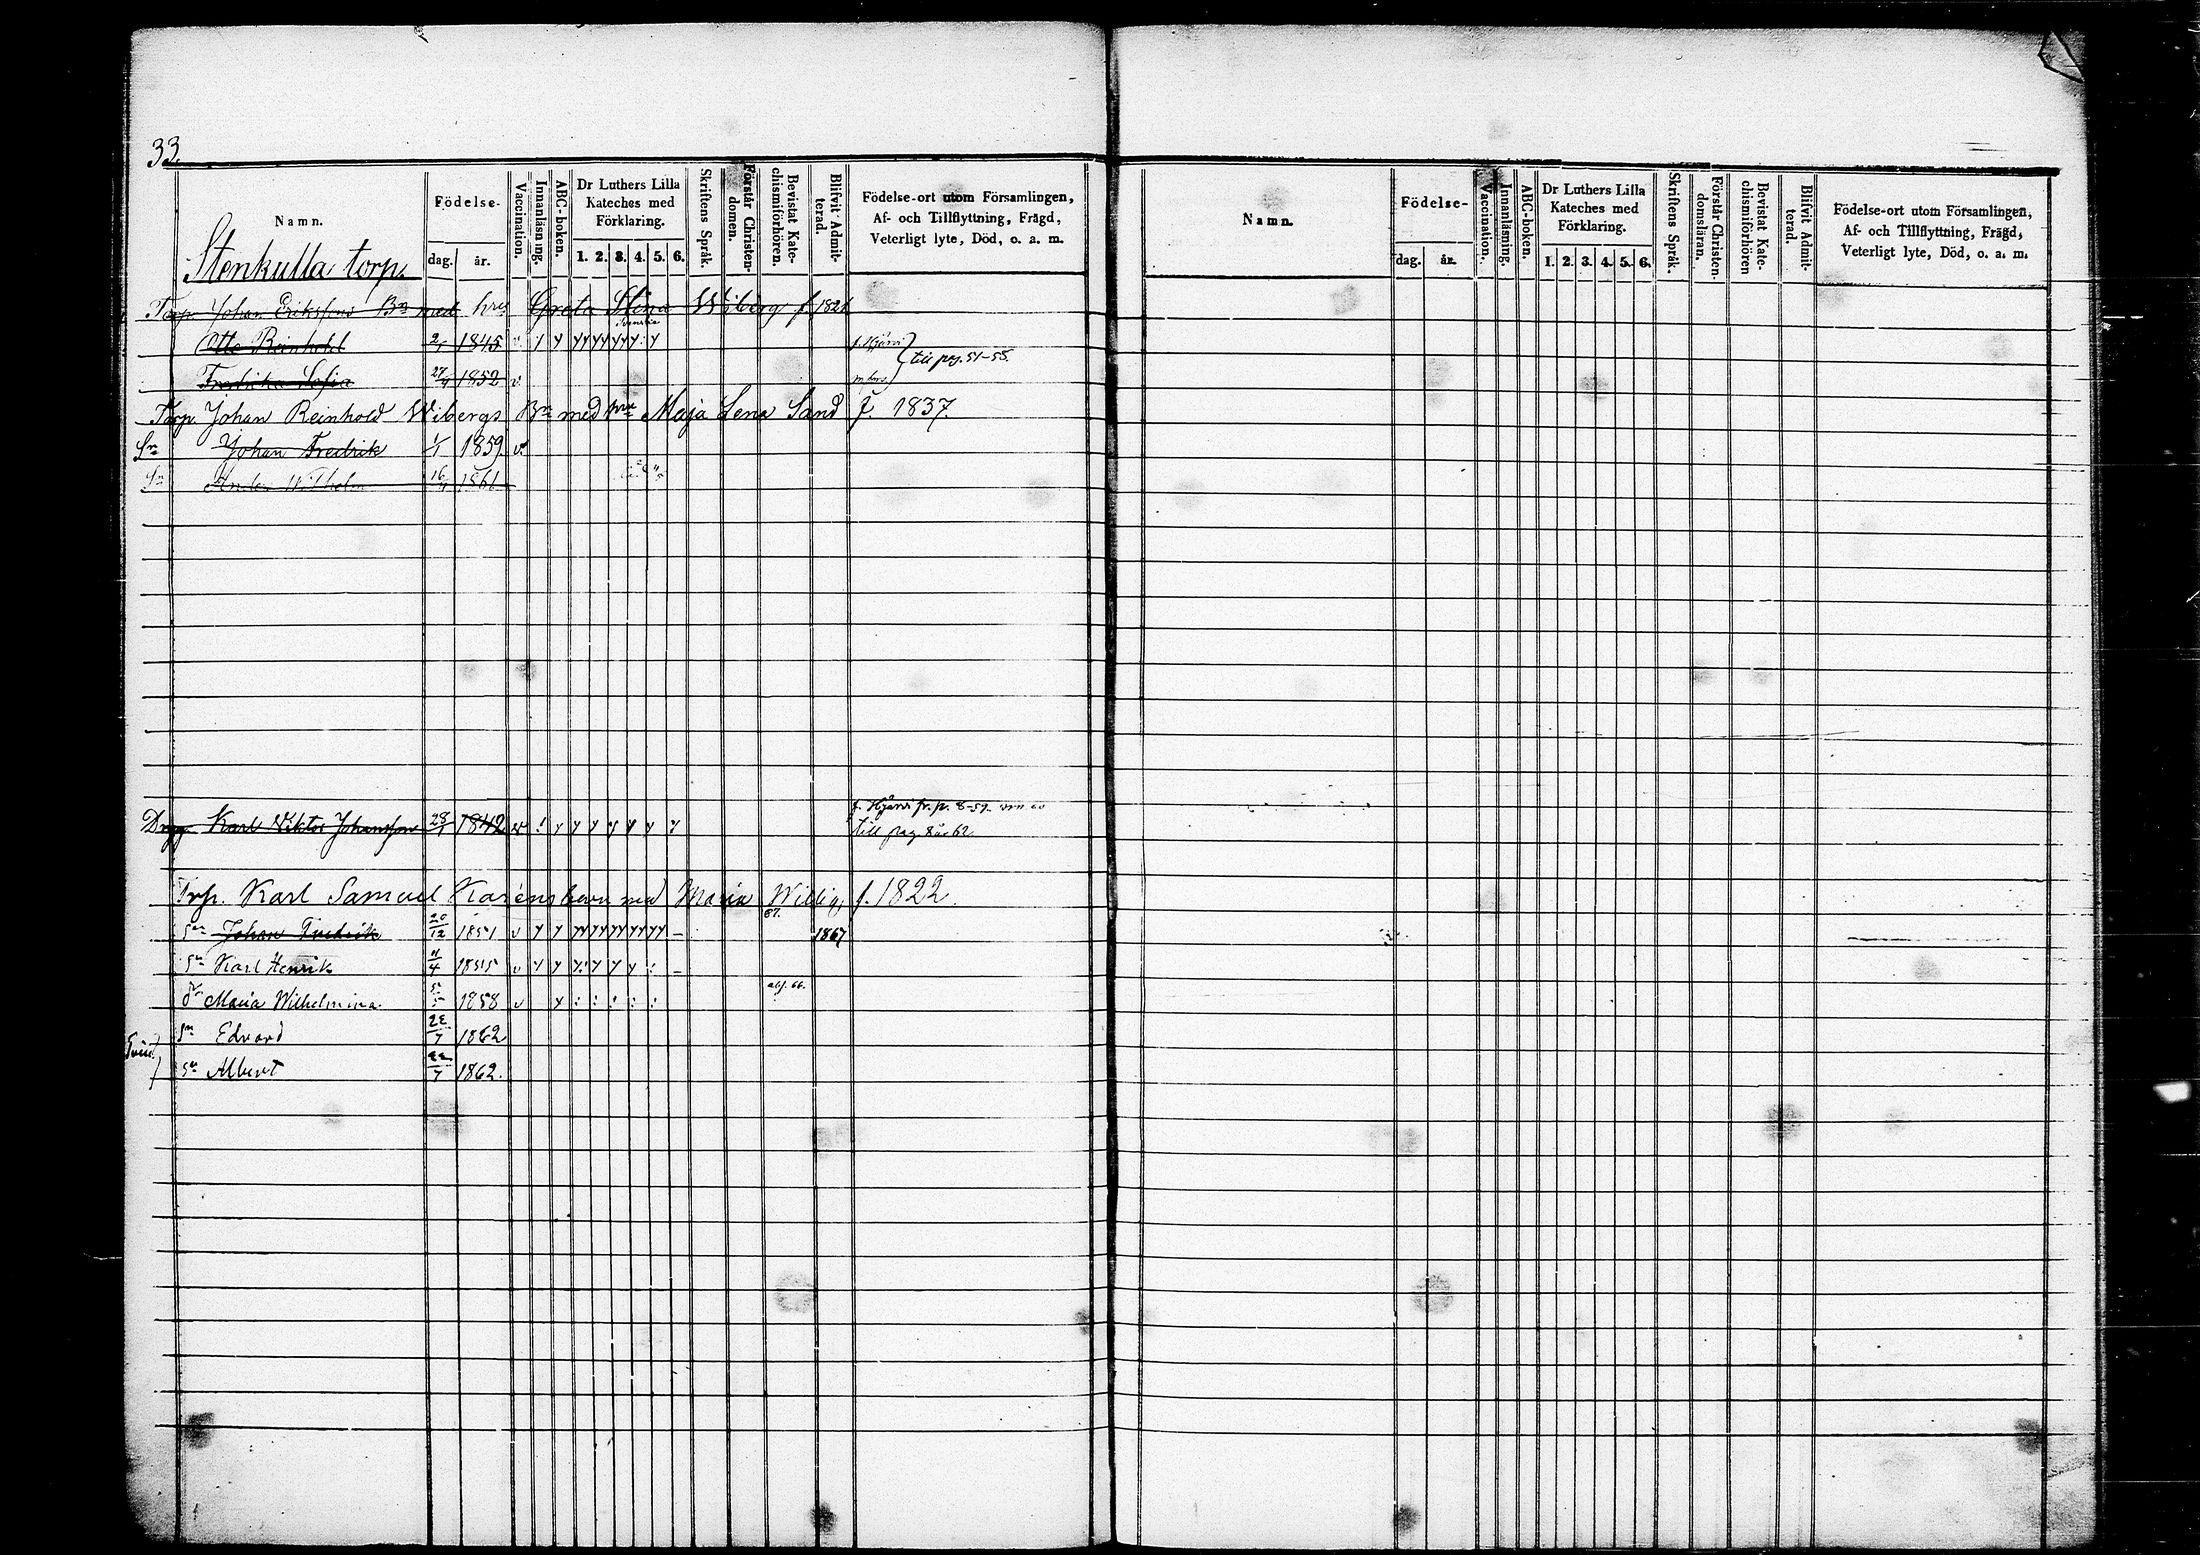 33.
Namn.
Födelse-
dag. år.
Vaccination.
Innanläsning.
ABC-boken.
Dr Luthers Lilla
Kateches med
Förklaring.
1. 2. 3. 4. 5. 6.
Skriftens Språk.
Förstår Christen-
domen.
Bevistat Kate-
chismiförhören.
Blifvit Admit-
terad.
Födelse-ort utom Församlingen,
Af- och Tillflyttning, Frägd,
Veterligt lyte, Död, o. a. m.
Stenkulla torp.
Torp. Johan Erikssons Bn med hru Greta Stina Wiberg f. 1821
Otto Reinhold 1845 v.
till pag. 51-55.
Fredrika Sofia 27/4 1852 v.
Torp. Johan Reinhold Wibergs Bn med hru Maja Lena Sand f. 1837.
Sn Johan Fredrik 1/1 1859 v.
Sn Anders Wilhelm 16/4 1861
f. Hjärvi fr. p. 8-59.
Dräng Karl Viktor Johansson 28/1 1842 v
till pag 8 år 62
Trp. Karl Samuel Karéns barn med Maria Willig f. 1822.
67.
Sn Johan Fredrik 20/12 1851 v 1867
Sn Karl Henrik 11/4 1855 v
abs. 66.
dr Maria Wilhelmina 5/5 1858 v
Sn Edvard 22/7 1862
Tvill.
Sn Albert 22/7 1862.
Namn.
Födelse-
dag. år.
Vaccination.
Innanläsning.
ABC-boken.
Dr Luthers Lilla
Kateches med
Förklaring.
1. 2. 3. 4. 5. 6.
Skriftens Språk.
Förstår Christen-
domsläran.
Bevistat Kate-
chismiförhören
Blifvit Admit-
terad.
Födelse-ort utom Församlingen,
Af- och Tillflyttning, Frägd,
Veterligt lyte, Död, o. a. m.